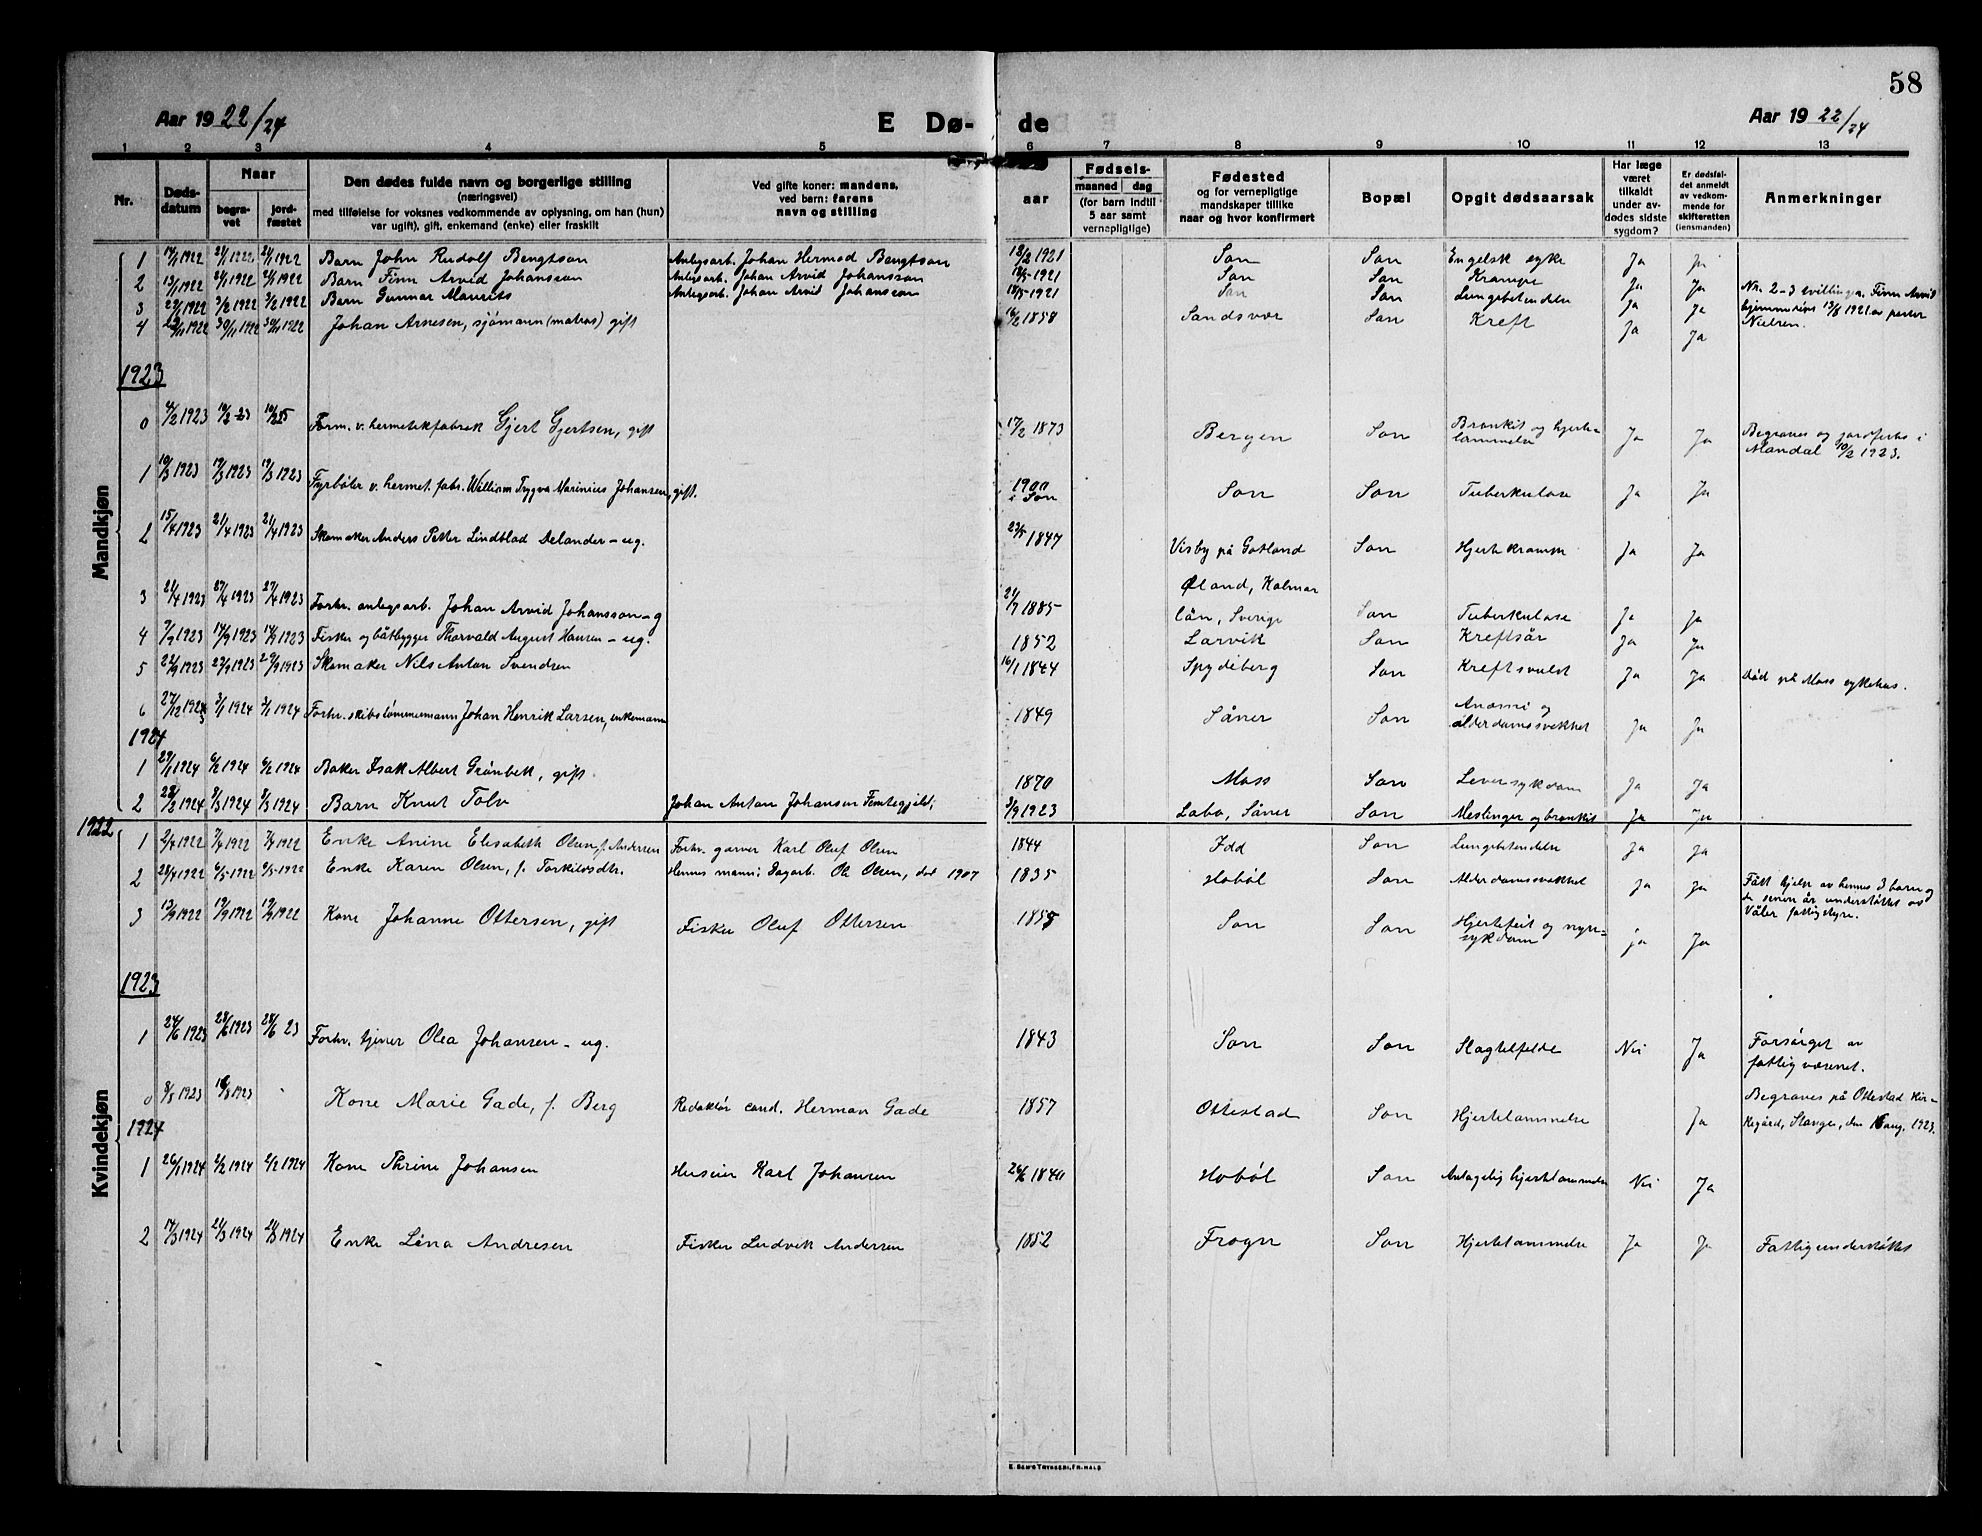 58
Aar 1922/24 E Dø- de Aar 1922/24
1 2 3 4 5 6 7 8 9 10 11 12 13
Nr. Døds-datum Naar begra-vet jord-fæstet Den dødes fulde navn og borgerlige stilling (næringsvei) med tilføielse for voksnes vedkommende av oplysning, om han (hun) var ugift), gift, enkemand (enke) eller fraskilt Ved gifte koner: mandens, ved barn: farens navn og stilling aar Fødsels- maaned dag (for barn indtil 5 aar samt vernepligtige) Fødested og for vernepligtige mandskaper tillike naar og hvor konfirmert Bopæl Opgit dødsaarsak Har læge været tilkaldt under av-dødes sidste sygdom? Er dødsfal-det anmeldt av vedkom-mende for skifteretten (lensmanden) Anmerkninger
Mandkjøn
1 17/1 1922 21/1 1922 21/1 1922 Barn John Rudolf Bengtson Anlegsarb. Johan Hermod Bengtson 18/2 1921 Son Son Engelsk syke Ja Ja
2 13/1 1922 21/1 1922 21/1 1922 Barn Finn Arvid Johansson Anlegsarb. Johan Arvid Johansson 18/5-1921 Son Son Krampe Ja Ja Nr. 2-3 tvillinger. Finn Arvid
3 29/1 1922 3/2 1922 3/2 1922 Barn Gunnar Maurits Anlegsarb. Johan Arvid Johansson 18/5-1921 Son Son Lungebetendelse Ja Ja hjemmedøpt 13/8 1921 av pastor
4 22/11 1922 30/11 1922 30/11 1922 Johan Arnesen, sjömann (matros) gift 16/2 1858 Sandsvær Son Kreft Ja Ja Nielsen.
1923
0 4/2 1923 10/2-23 10/2 Form. v. hermetikfabrik Gjert Gjertsen, gift 17/2 1873 Bergen Son Bronkit og hjerte-lammelse Ja Ja Begraves og jordfestes i Mandal 10/2 1923.
1 10/3 1923 17/3 1923 17/3 1923 Fyrbøter v. hermet. fabr. William Trygve Marinius Johansen, gift. 1900 i Son Son Son Tuberkulose Ja Ja
2 15/4 1923 21/4 1923 21/4 1923 Skomaker Anders Petter Lindblad Delander - ug. 23/5 1847 Visby på Gotland Son Hjertekrampe Ja Ja
3 21/4 1923 27/4 1923 27/4 1923 Forhv. anlegsarb. Johan Arvid Johansson - g 21/7 1885 Øland, Kalmar län, Sverige Son Tuberkulose Ja Ja
4 7/9 1923 14/9 1923 14/9 1923 Fisker og båtbygger Thorvald August Hansen - ug. 1852 Larvik Son Kreftsår Ja Ja
5 22/9 1923 29/9 1923 29/9 1923 Skomaker Nils Anton Svendsen 16/1 1844 Spydeberg Son Kreftsvulst Ja Ja Död på Moss sykehus.
6 27/12 1923 3/1 1924 3/1 1924 Forhv. skibstömmermann Johan Henrik Larsen, enkemann 1849 Såner Son Anæmi og alderdomssvekket Ja Ja
1924
1 29/1 1924 6/2 1924 6/2 1924 Baker Isak Albert Grönbek, gift. 1870 Moss Son Leversykdom Ja Ja
2 28/2 1924 8/3 1924 8/3 1924 Barn Knut Tolv Johan Anton Johansen 3/9 1923 Labo, Såner Son Meslinger og bronkit Ja Ja
Kvindekjøn
1922
1 2/4 1922 7/4 1922 7/4 1922 Enke Anine Elisabeth Olsen, f. Andersen Forhv. garver Karl Oluf Olsen 1844 Idd Son Lungebetendelse Ja Ja
2 28/4 1922 6/5-1922 6/5-1922 Enke Karen Olsen, f. Torkildsdtr. Hennes mann: Dagarb. Ole Olsen, död 1907 1835 Hobøl Son Alderdomssvekket Ja Ja Fått hjelp av hennes 3 barn og de senere år understöttet av Våler fattigstyre.
3 13/9 1922 19/9 1922 19/9 1922 Kone Johanne Ottersen, gift Fisker Oluf Ottersen 1855 Son Son Hjertefeil og nyre-sykdom ja Ja
1923
1 24/6 1923 28/6 1923 28/6 23 Forhv. tjener Olea Johansen - ug. 1843 Son Son Slagtilfelde Nei Ja Forsörget av fattigvæsenet.
0 8/8 1923 16/8 1923 Kone Marie Gade, f. Berg Redaktör cand. Herman Gade 1857 Ottestad Son Hjertelammelse Ja Begraves på Ottestad kir-kegård, Stange, den 16 aug. 1923.
1924
1 26/1 1924 2/2 1924 2/2 1924 Kone Thrine Johansen Huseier Karl Johansen 26/6 1840 Hobøl Son Antagelig hjertelammelse Nei Ja
2 14/3 1924 21/3 1924 21/3 1924 Enke Lina Andresen Fisker Ludvik Andersen 1852 Frogn Son Hjertelammelse Ja Ja Fattigunderstöttet
E. SEM'S TRYKKERI, FR.HALD